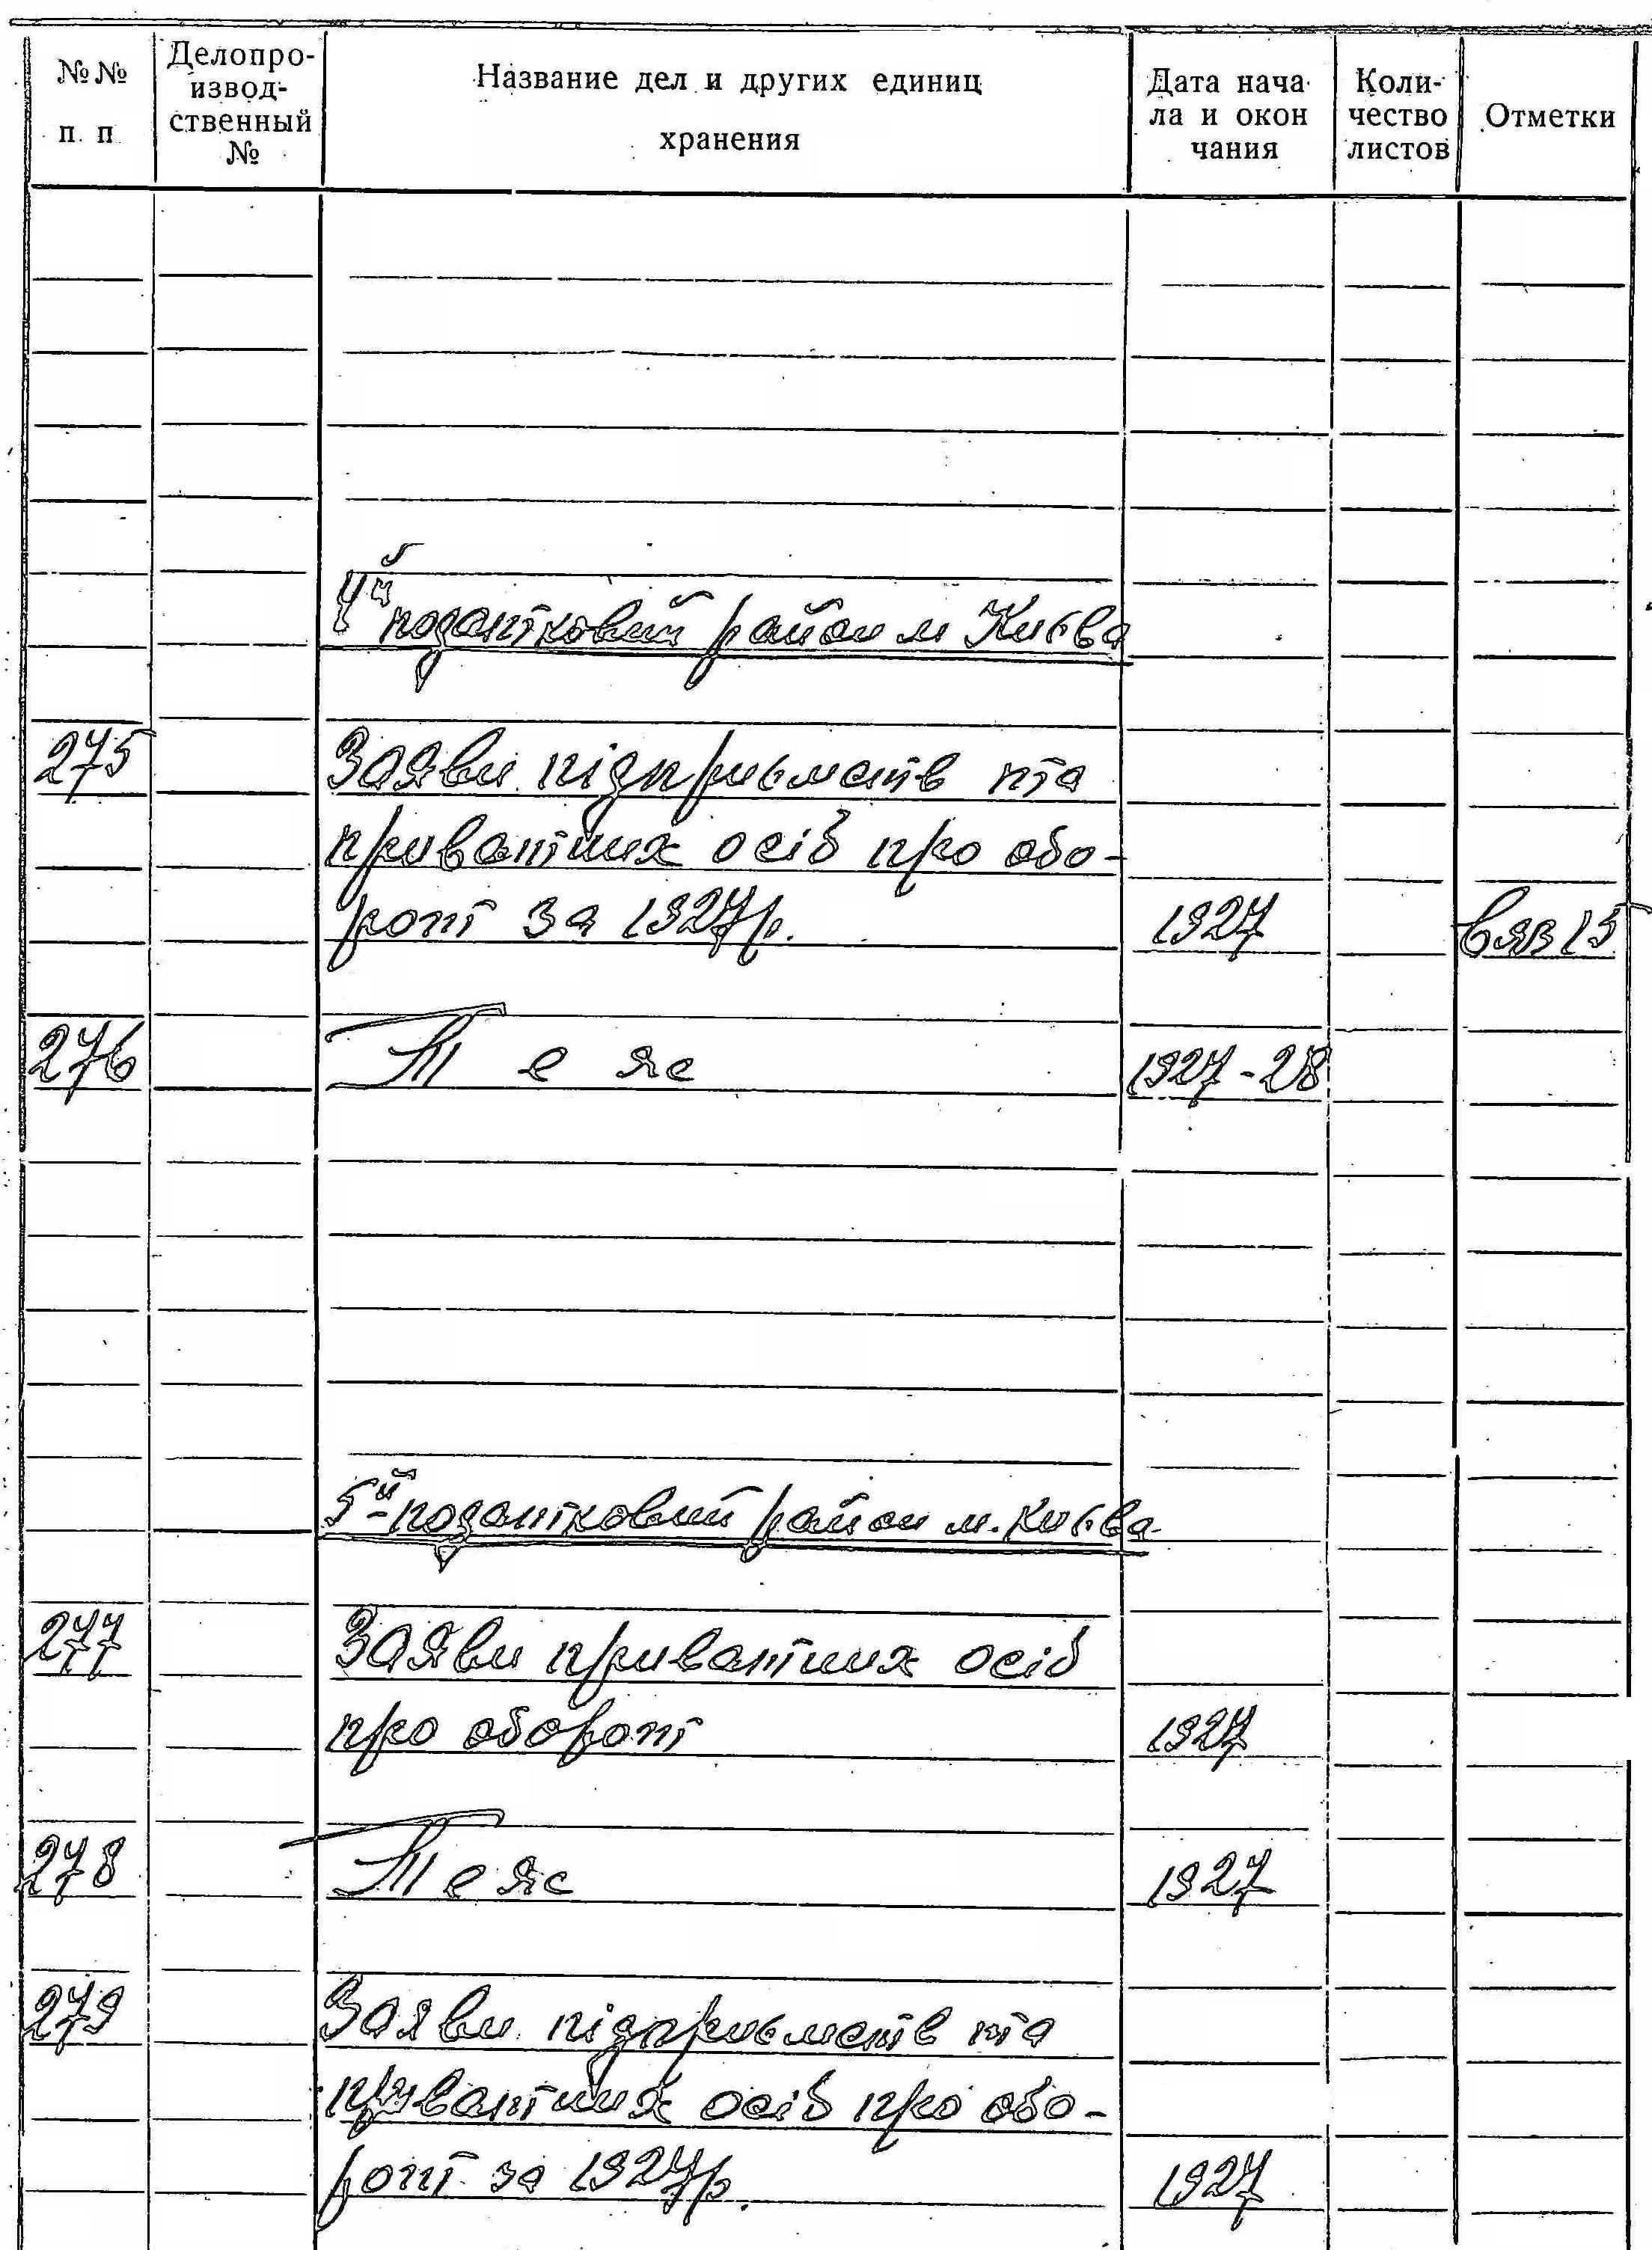 №№ п. п
Делопро-
извод-
ственный
№
Название дел и других единиц
хранения
Дата нача
ла и окон
чания
Коли-
чество
листов
Отметки
4й податковий район м Київа
275 Заяви підприємств та
приватних осіб про обо-
рот за 1927р. 1927 Вяз 15
276 Те же 1927-28
5й податковий район м. Київа
277 Заяви приватних осіб
про оборот 1927
278 Те же 1927
279 Заяви підприємств та
приватних осіб про обо-
рот за 1927р. 1927